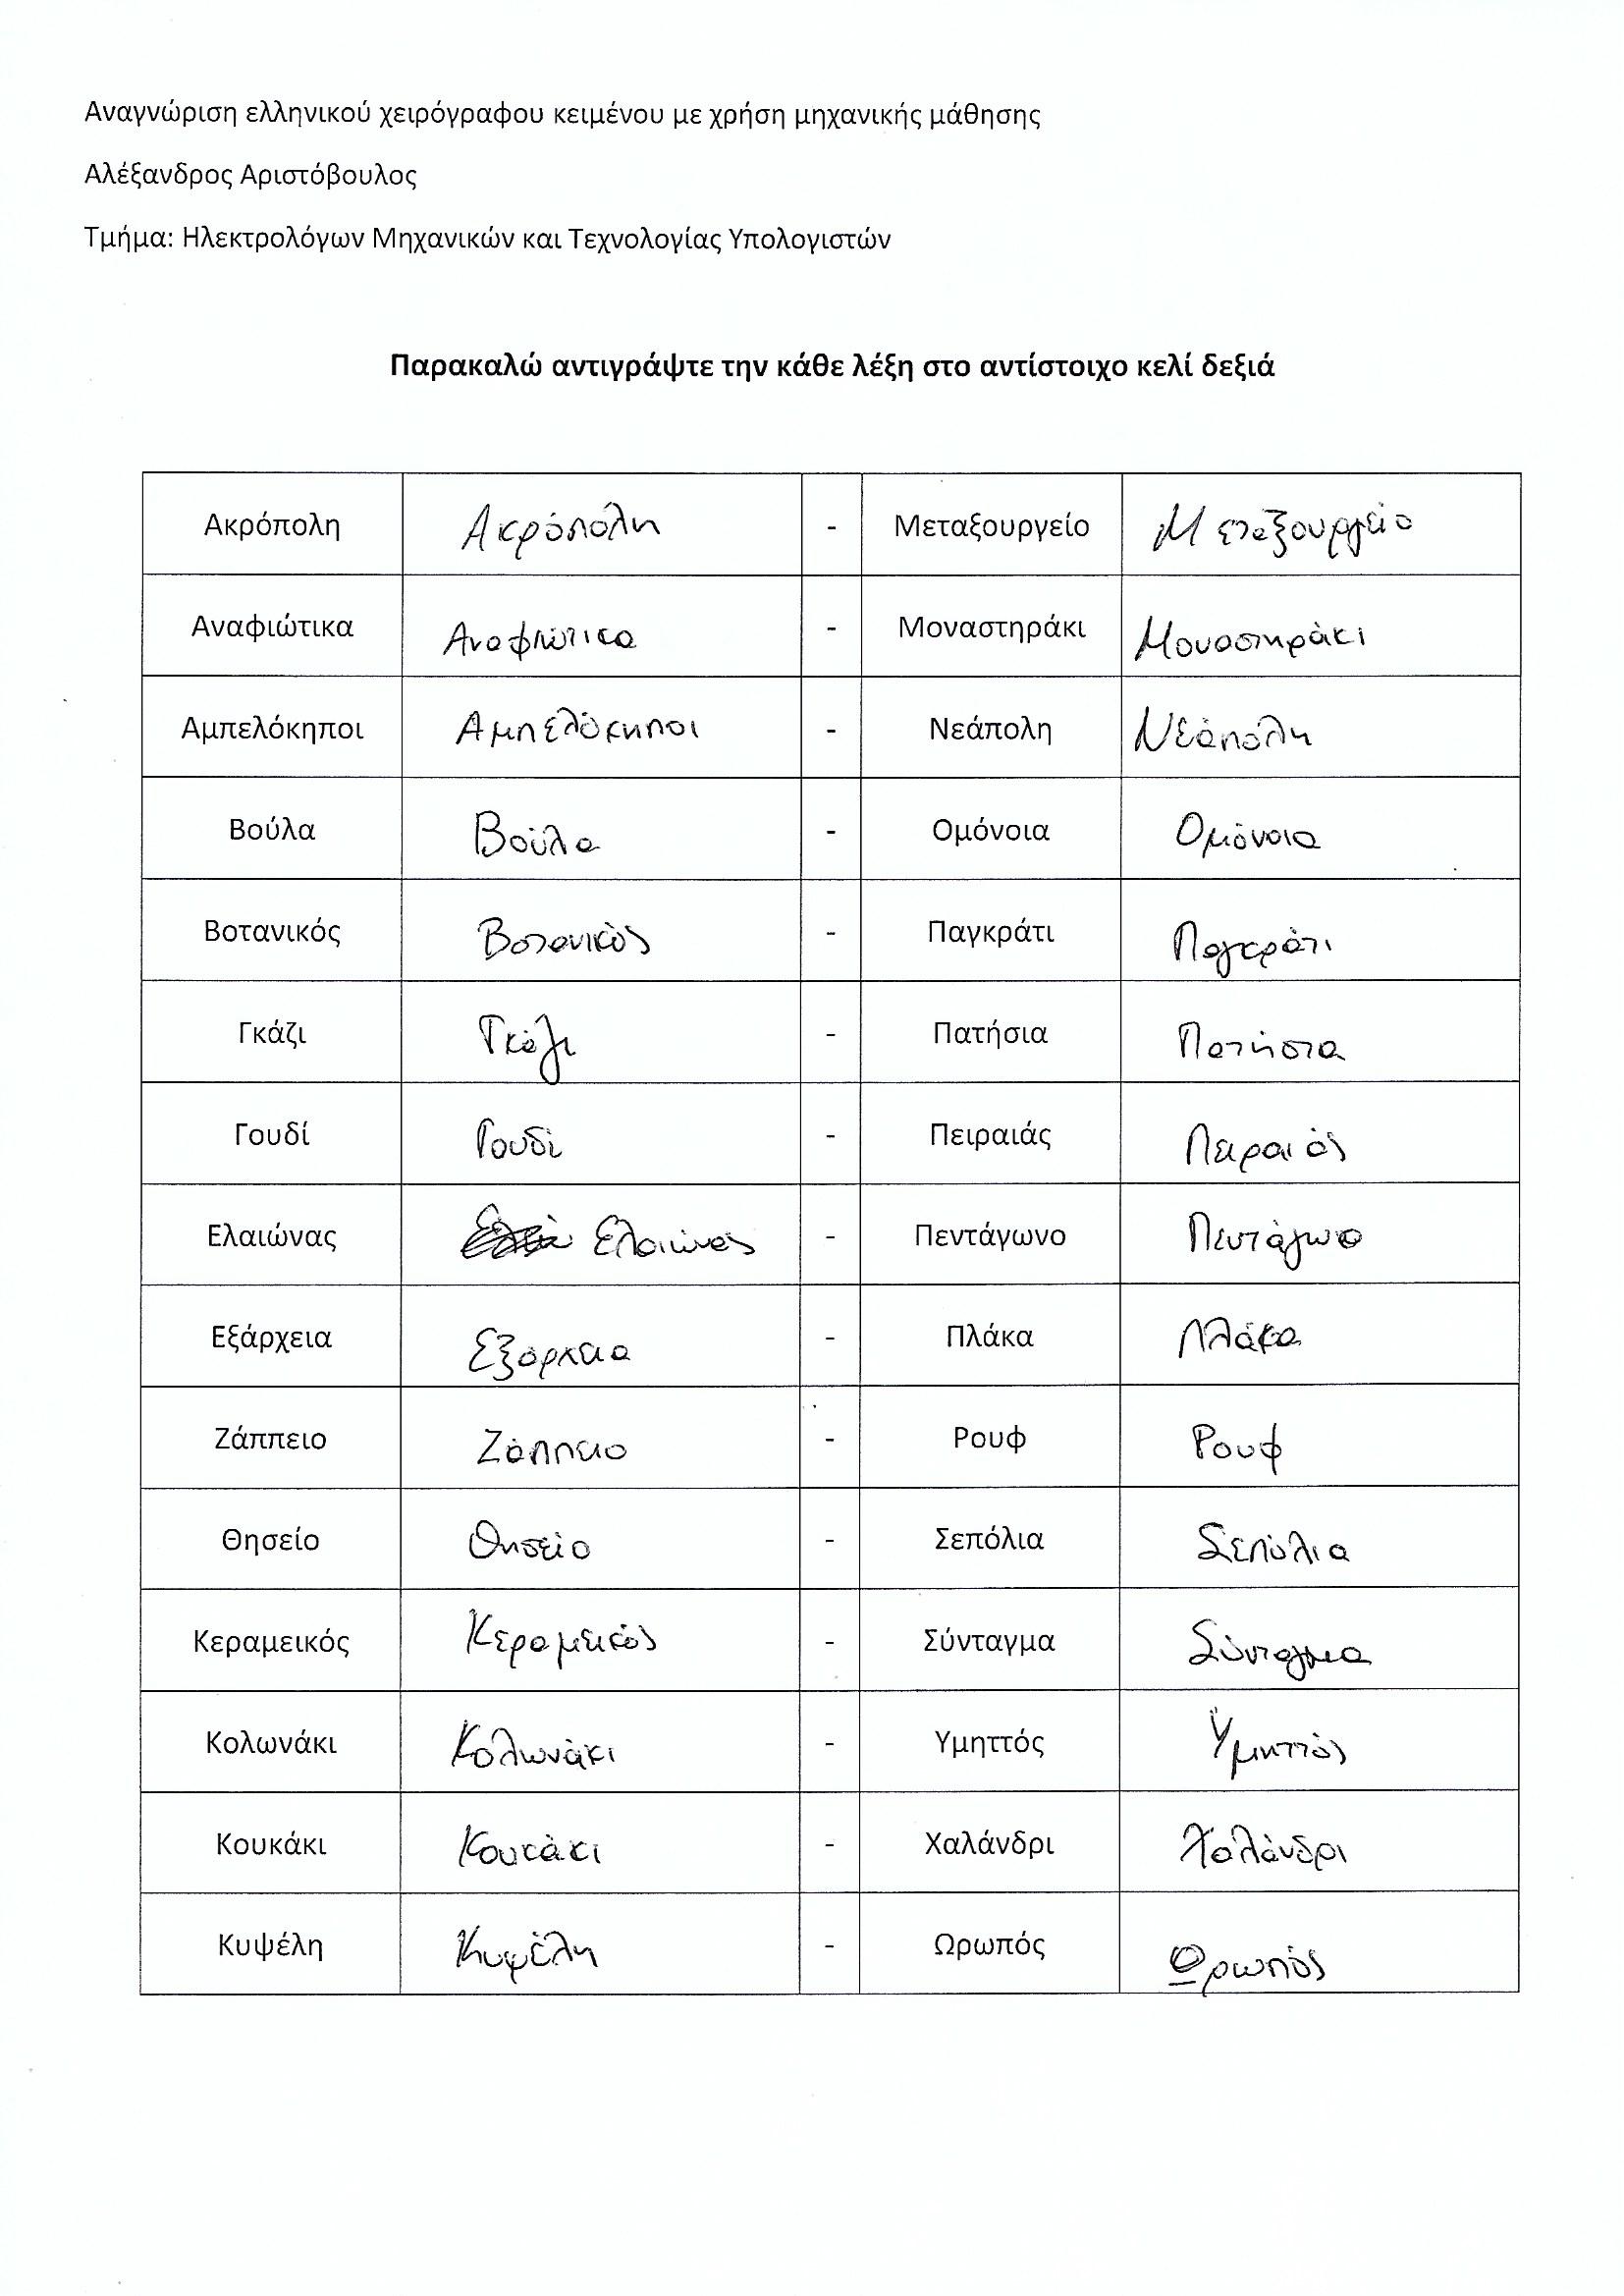 Αναγνώριση ελληνικού χειρόγραφου κειμένου με χρήση μηχανικής μάθησης
Αλέξανδρος Αριστόβουλος
Τμήμα: Ηλεκτρολόγων Μηχανικών και Τεχνολογίας Υπολογιστών
Παρακαλώ αντιγράψτε την κάθε λέξη στο αντίστοιχο κελί δεξιά
Ακρόπολη Ακρόπόλη - Μεταξουργείο Μεταξουργείο
Αναφιώτικα Αναφιώτικα - Μοναστηράκι Μοναστηράκι
Αμπελόκηποι Αμπελόκηποι - Νεάπολη Νεάπόλη
Βούλα Βούλα - Ομόνοια Ομόνοια
Βοτανικός Βοτανικός - Παγκράτι Παγκράτι
Γκάζι Γκάζι - Πατήσια Πατήσια
Γουδί Γουδί - Πειραιάς Πειραιάς
Ελαιώνας Ελαιώνας - Πεντάγωνο Πεντάγωνο
Εξάρχεια Εξάρχεια - Πλάκα Πλάκα
Ζάππειο Ζάππειο - Ρουφ Ρουφ
Θησείο Θησείο - Σεπόλια Σεπόλια
Κεραμεικός Κεραμεικός - Σύνταγμα Σύνταγμα
Κολωνάκι Κολωνάκι - Υμηττός Υμηττός
Κουκάκι Κουκάκι - Χαλάνδρι Χαλάνδρι
Κυψέλη Κυψέλη - Ωρωπός Ωρωπός